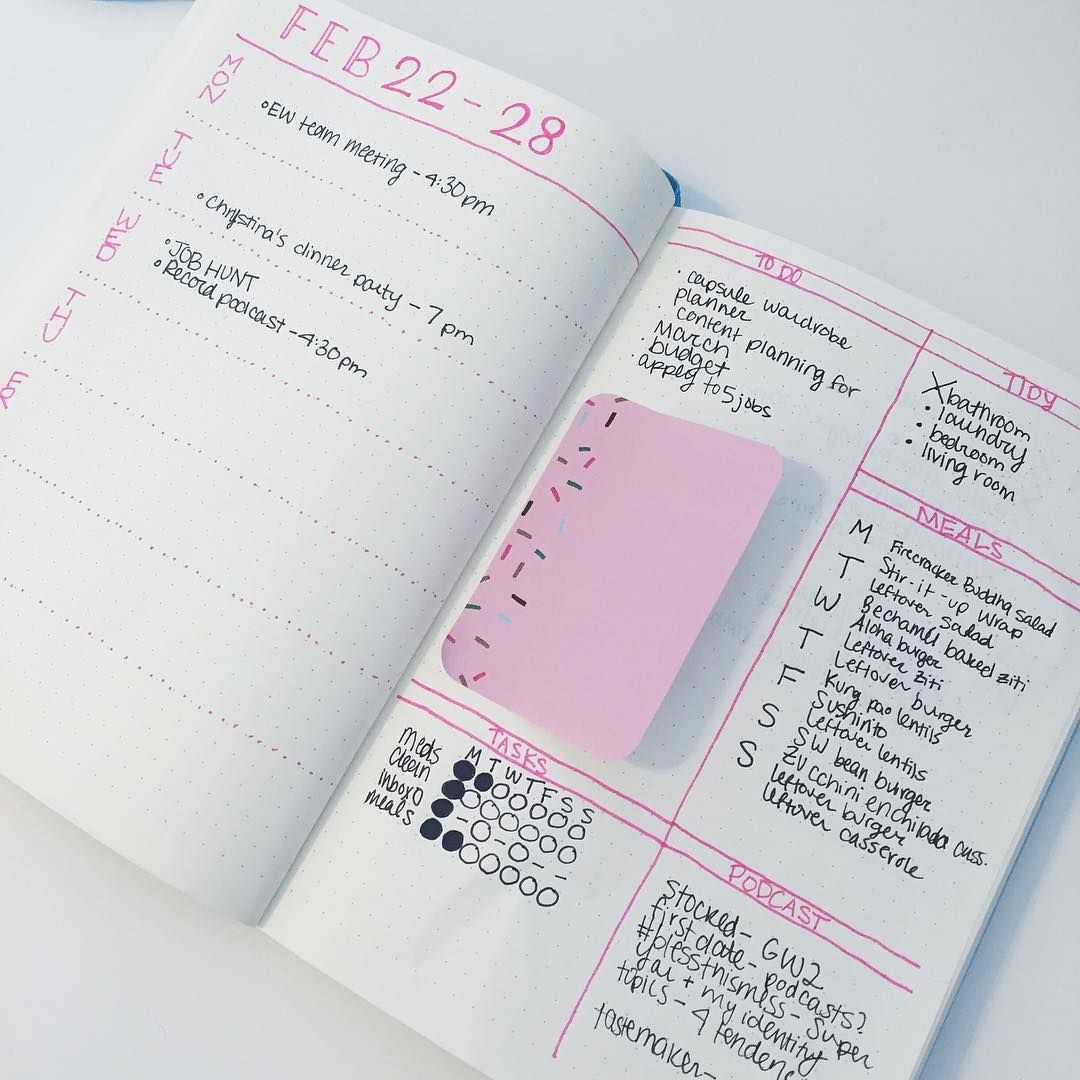 FEB 22-28
MON
• EW team meeting - 4:30pm
TUE
• Christina's dinner party - 7pm
WED
• JOB HUNT
• Record podcast - 4:30pm
THU
FRI
TO DO
• capsule wardrobe
planner
• content planning for
March
• budget
• apply to 5 jobs
TIDY
X bathroom
• laundry
• bedroom
• living room
MEALS
M Firecracker Buddha salad
Stir-it-up wrap
T Leftover salad
Bechamel baked ziti
W Aloha burger
Leftover ziti
T Leftover burger
Kung pao lentils
F Sushirrito
Leftover lentils
S SW bean burger
Zucchini enchilada cass.
S leftover burger
leftover casserole
TASKS
M T W T F S S
Meds
Clean
inbox 0
meals
PODCAST
Stocked - GW2
First date - podcasts?
#blessthismess - Super
gal + my identity
topics - 4 tendenc
tastemaker -